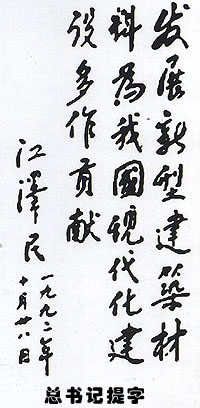 发展新型建築材
料为我國現代化建
设多作贡献
江澤民
一九九二年
十月廿八日
总书记提字